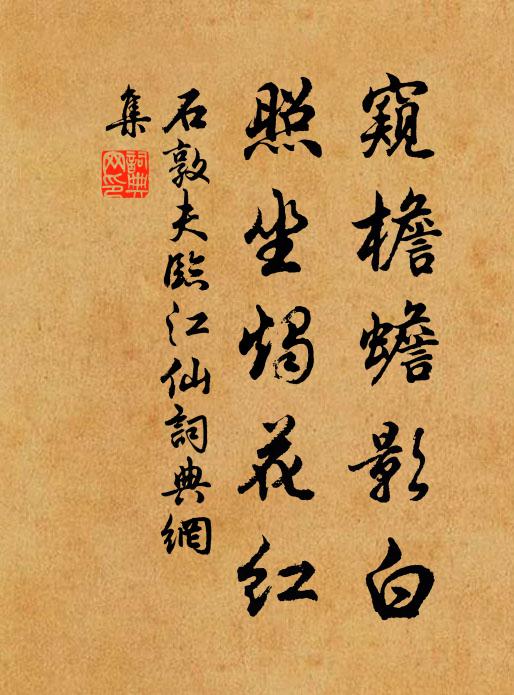 窺檐蟾影白
照坐燭花紅
石敦夫臨江仙詞典網
集
詞典網印